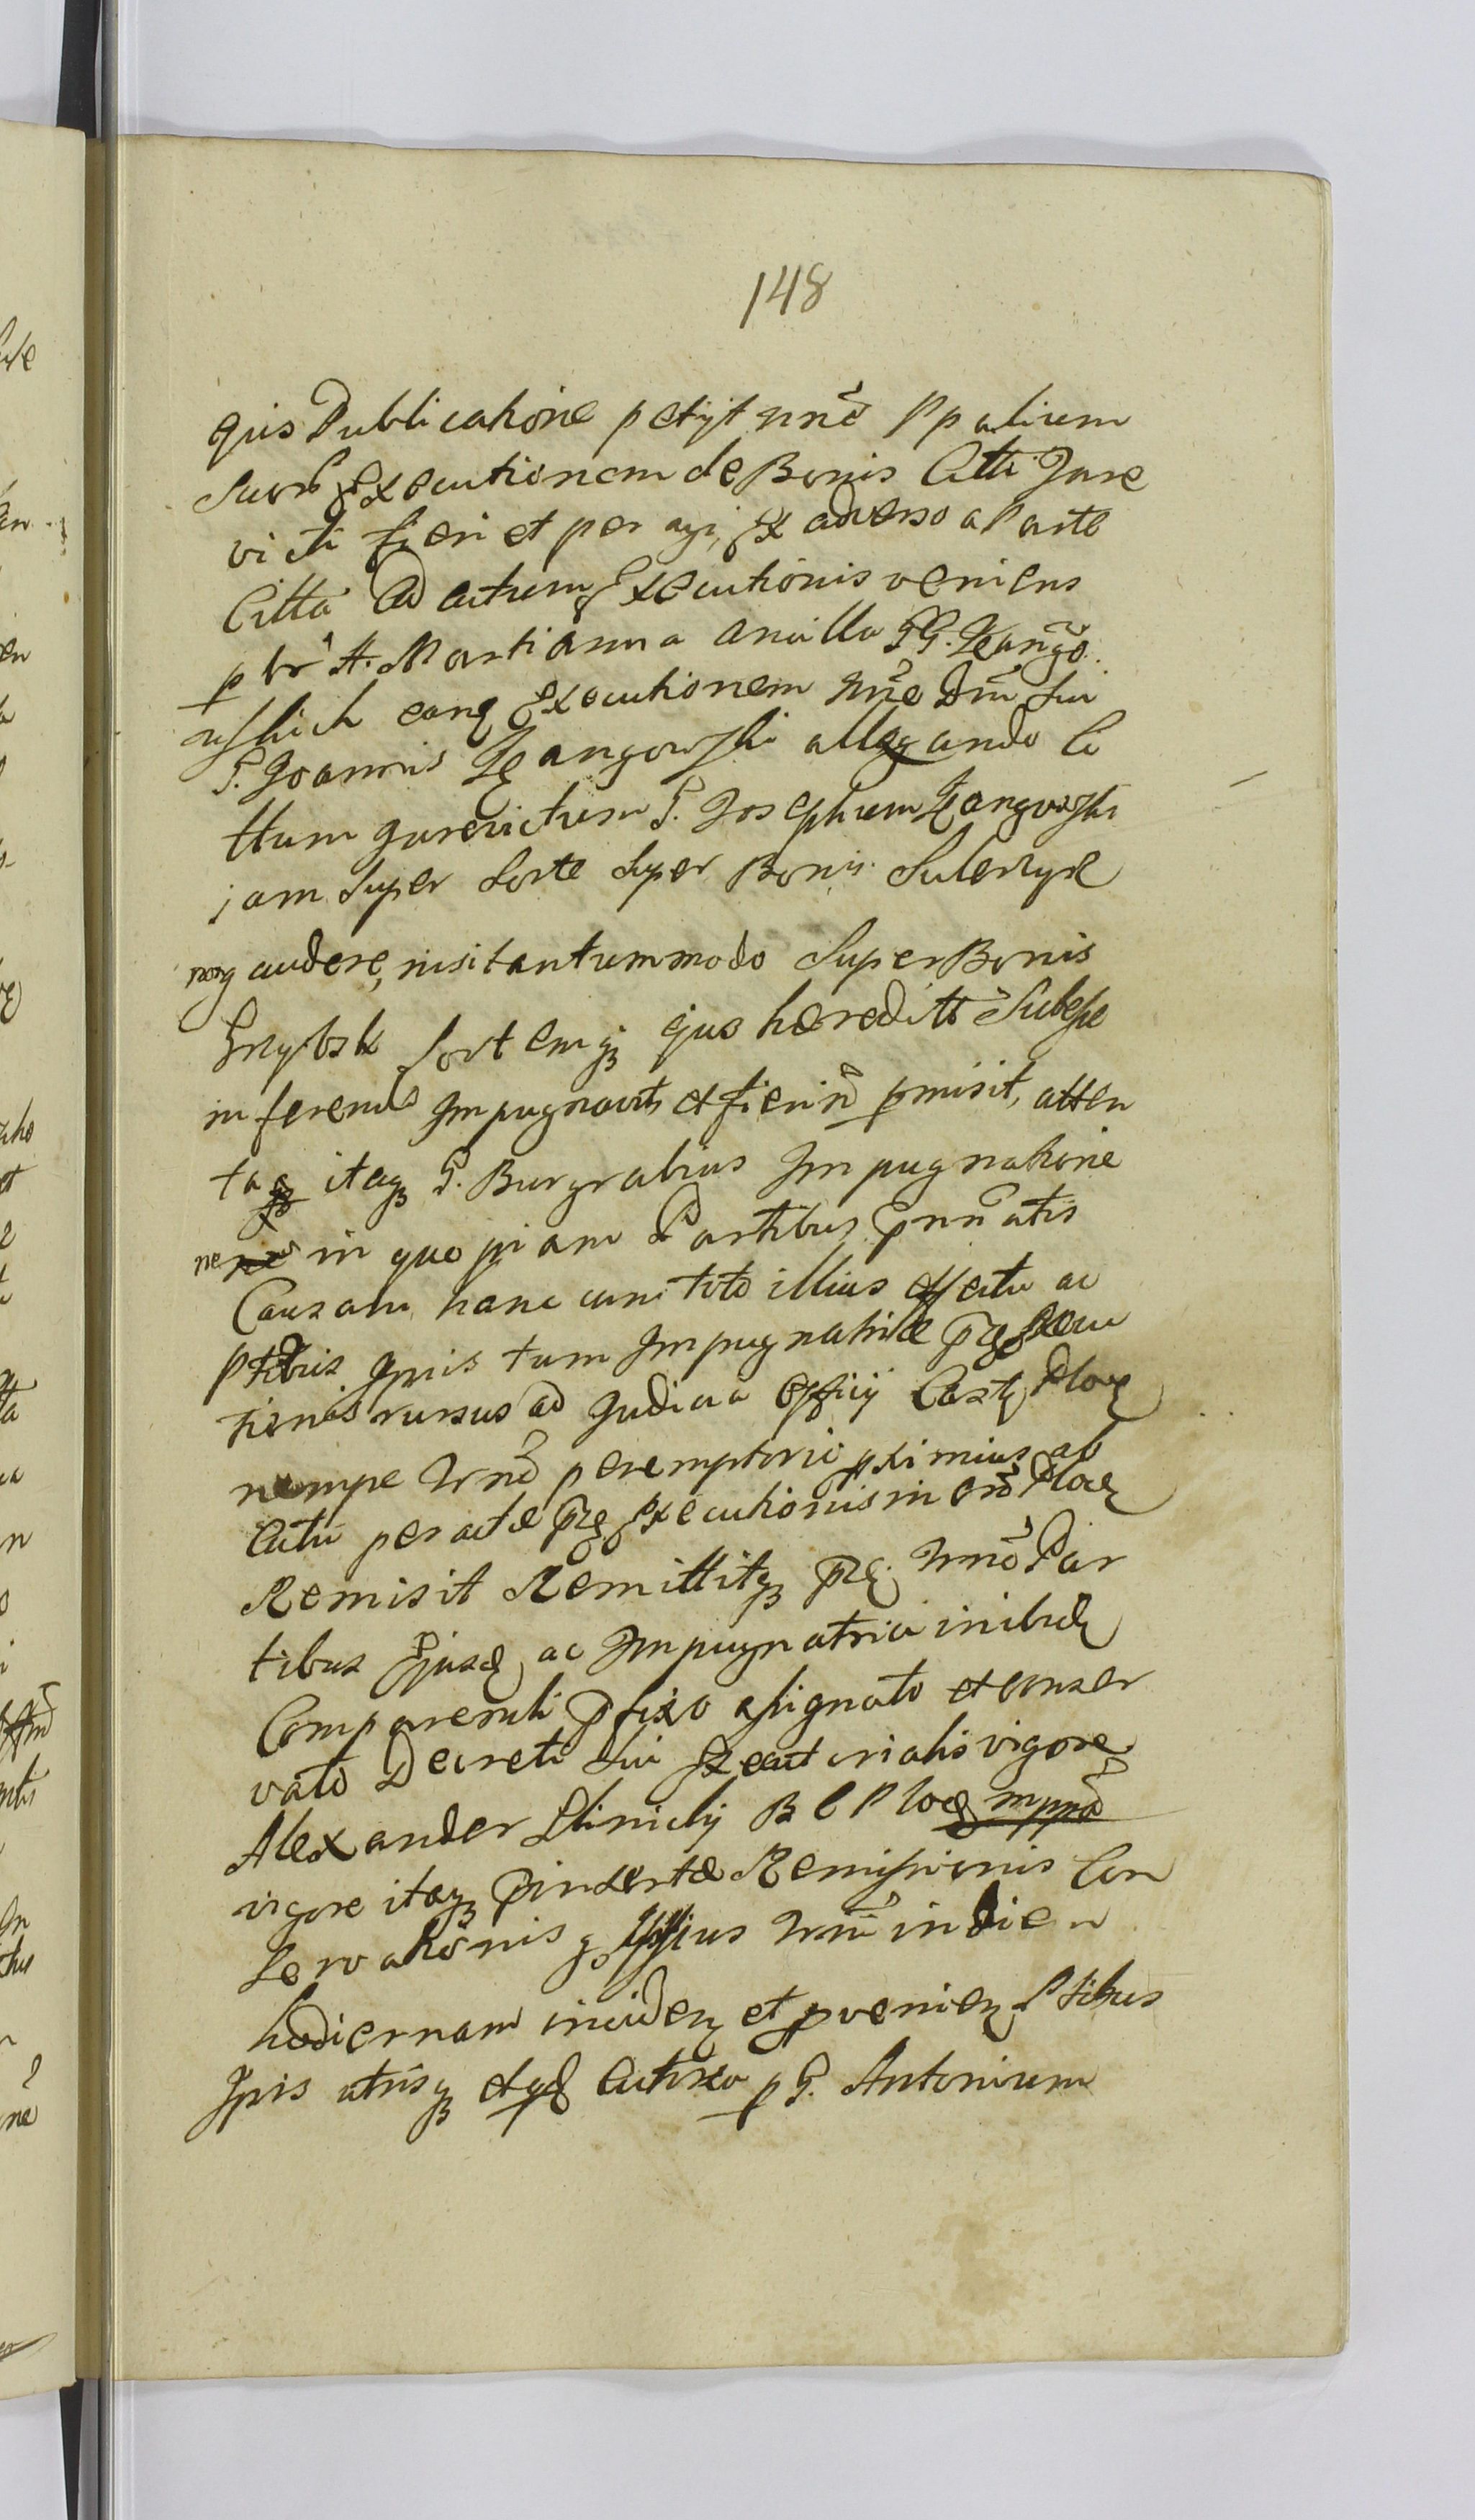 148
quis Publicatione petijt nnē Ppalium
suorū Executionem de Bonis Citti Jure
victi fieri et peragi, Ex adverso a Parte
Citta Ad actum Executionis veniens
A. Martianna ancilla GG. Zango
wskich eanq Executionem nnē Dnī sui
G. Joannis Zangowski allegando Ci
ttum jurevictum G. Josephum Zangowski
jam super Sorte super Bonis
non gaudere, nisi tantummodo super Bonis
Grzybsk Sortemq ejus hæreditt
inferendo Impugnavit et fieri nō pmisit, atten
ta itaq G. Burgrabius Impugnatione
ne in quopiam Partibus
Causam hanc cum toto illius effectu ac
Ptibus Ipsis tum Impugnatione
tionis rursus ad Judicia Officij Castr Ploc
nempe Trnō peremptorie pximius ab
actu peractæ Executionis in Ploc
Remisit Remittitq Trnō Par
tibus Ejusd ac Impugnatrici inibid
Comparendi pfixo assignato et conser
vato Decreti sui Executorialis vigore
Alexander Slinicky B C Ploc mppa
vigore itaq pinsertæ Remissionis Con
servationisq Ipsius Trnī in diem
hodiernam inciden et pvenien Ptibus
Ipsis utrisq et Actorea p G. Antonium